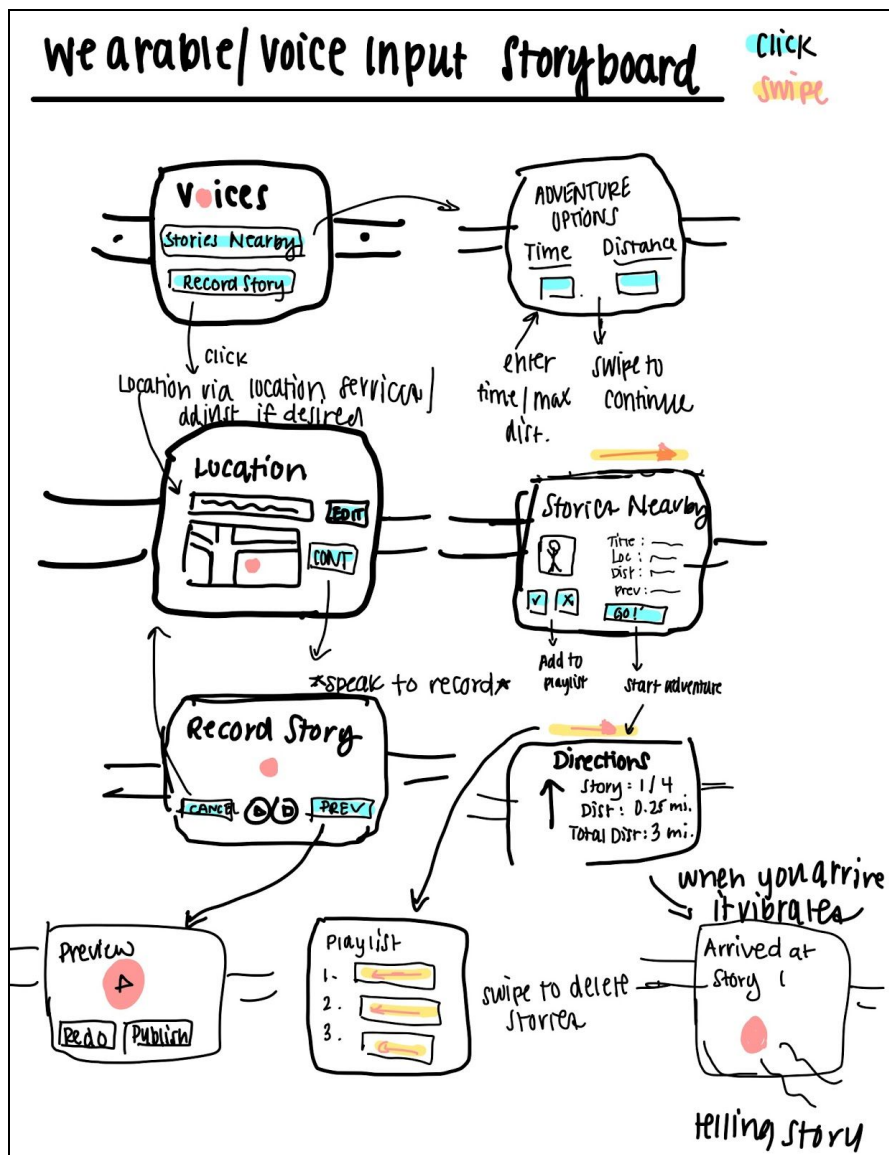 Wearable/Voice Input Storyboard
click
swipe
Voices
Stories Nearby
Record Story
click
ADVENTURE
OPTIONS
Time Distance
enter
time/max
dist.
swipe to
continue
Location via location services/
adjust if desired
Location
EDIT
CONT
Stories Nearby
Time:
Loc:
Dist:
prev:
GO!
Add to
playlist
start adventure
*speak to record*
Record Story
CANCEL
PREV
Directions
Story: 1/4
Dist: 0.25 mi.
Total Dist: 3 mi.
when you arrive
it vibrates
Preview
Redo Publish
Playlist
1.
2.
3.
swipe to delete
stories
Arrived at
Story 1
telling story